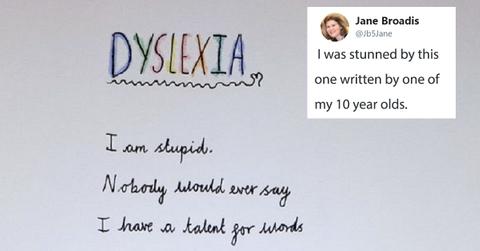 DYSLEXIA
I am stupid.
Nobody would ever say
I have a talent for words
Jane Broadis
@Jb5Jane
I was stunned by this
one written by one of
my 10 year olds.